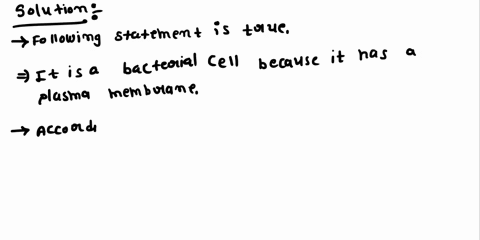 Solution:-
→ Following statement is true.
⇒ It is a bacterial cell because it has a
plasma membrane.
→ Accordi